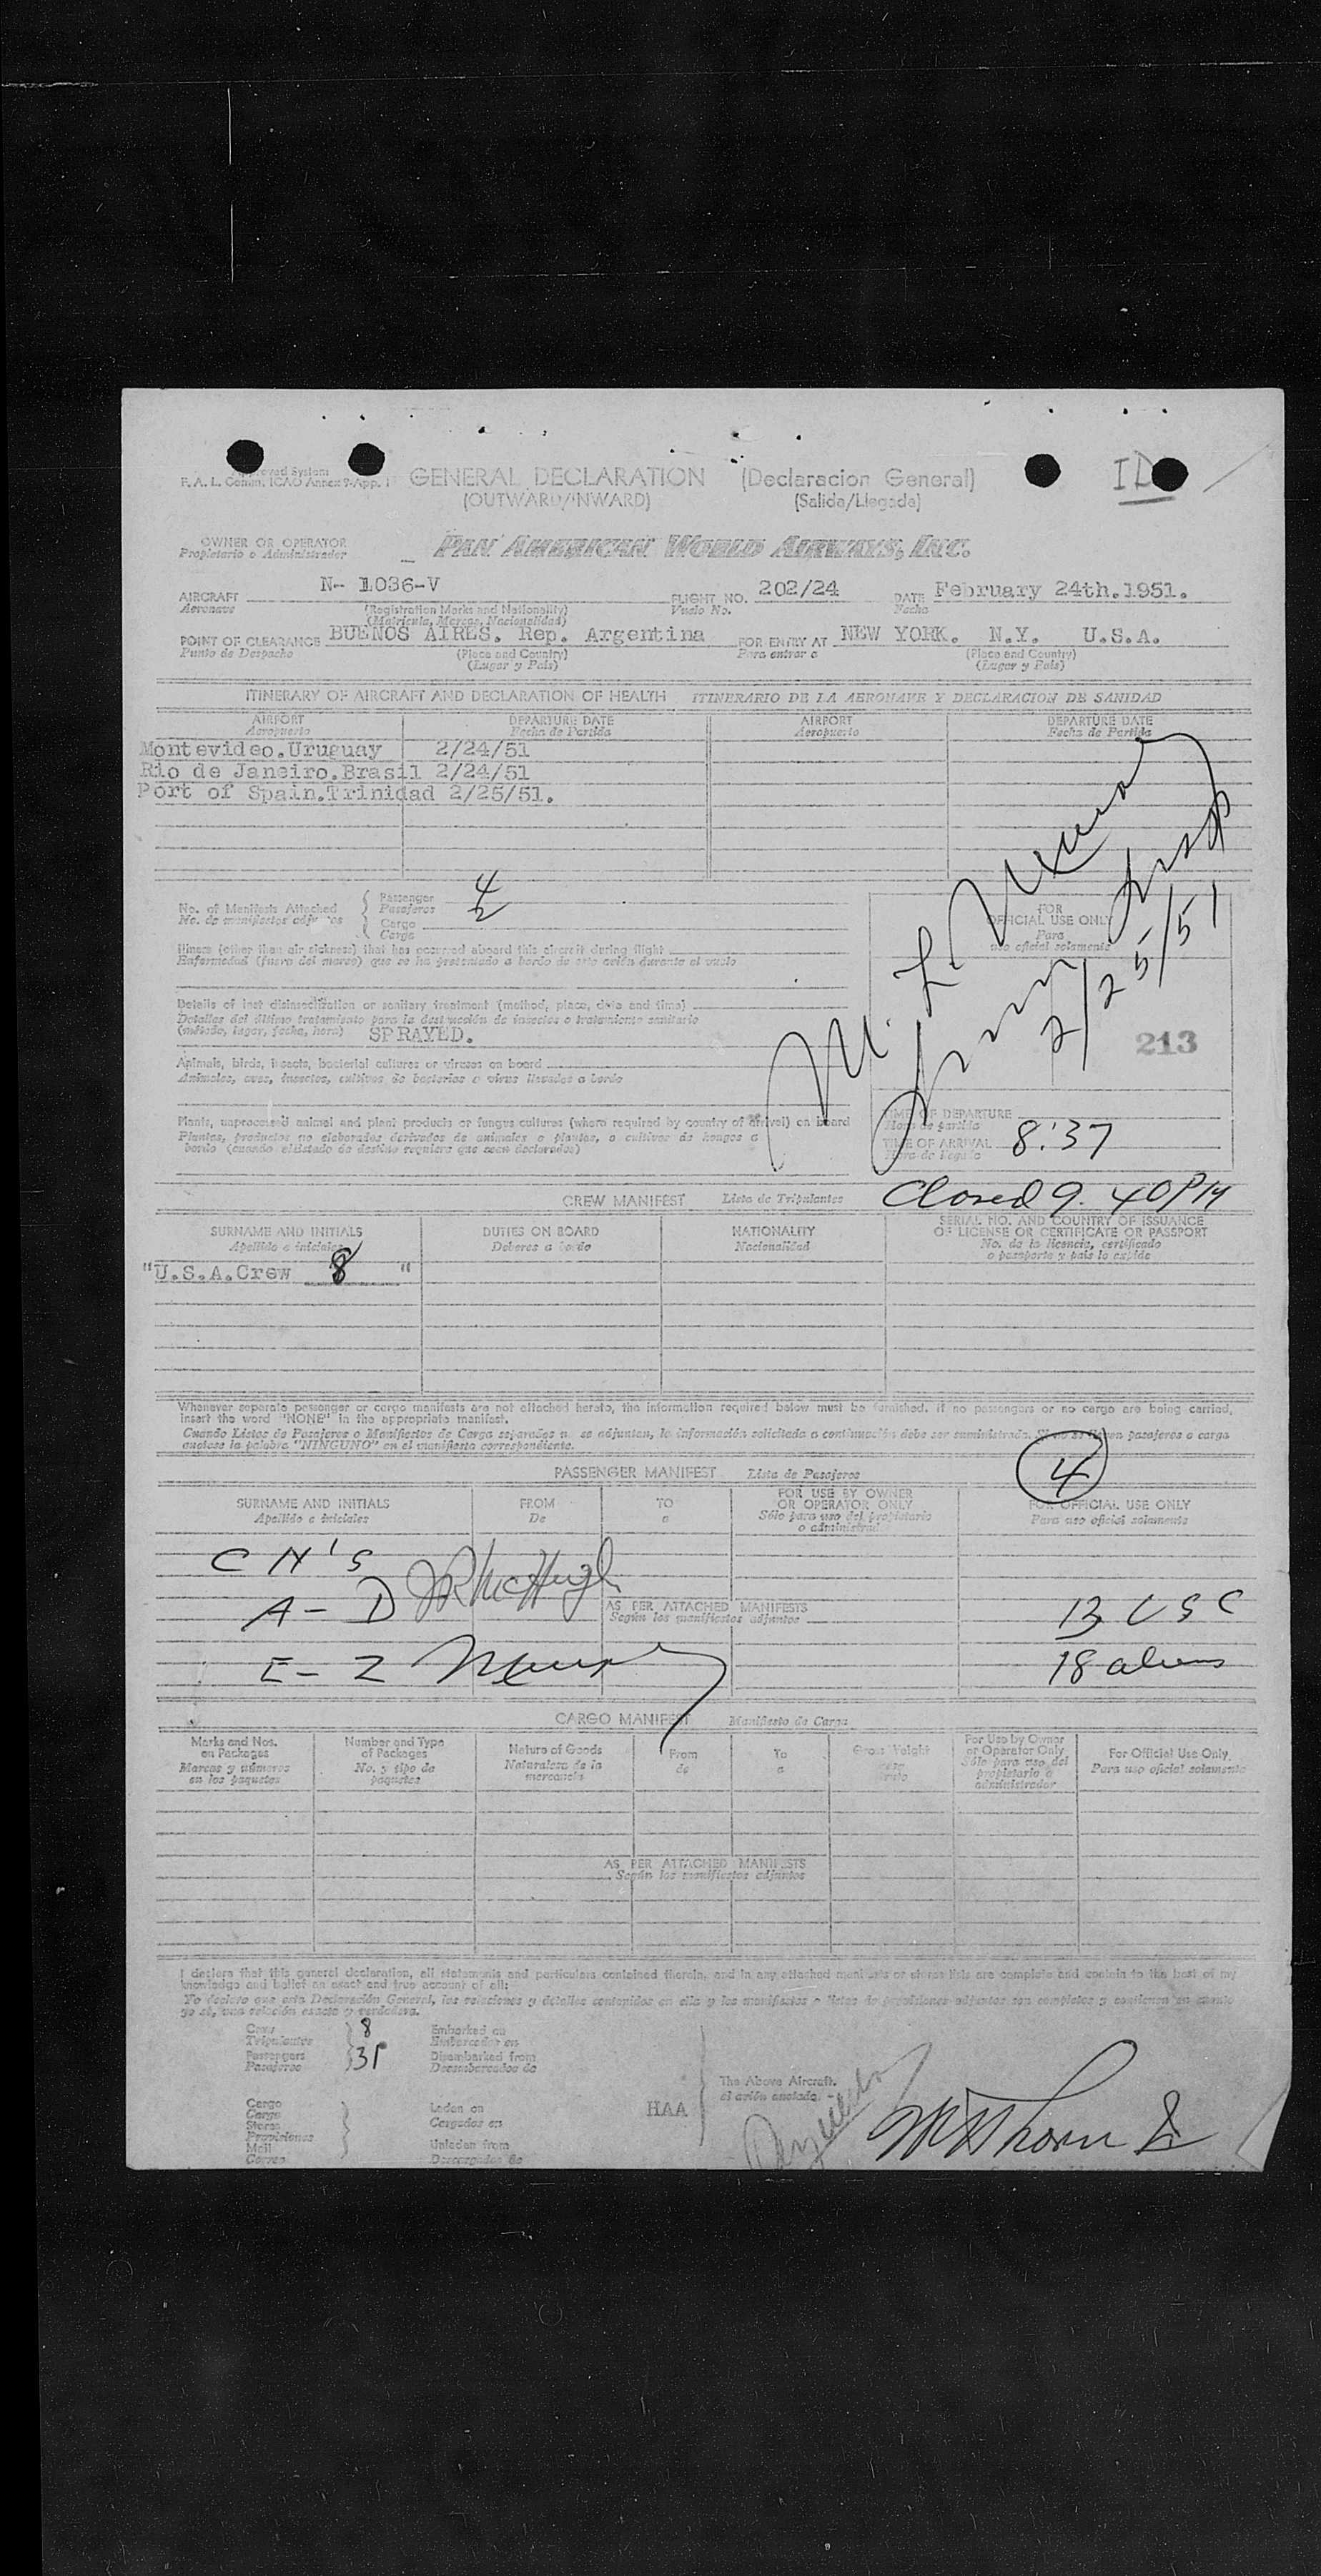 Approved System
F. A. L. Comm. ICAO Annex 9-App. 1
GENERAL DECLARATION (Declaracion General)
(OUTWARD/INWARD) (Salida/Llegada)
ID
OWNER OR OPERATOR
Propietario o Administrador
PAN AMERICAN WORLD AIRWAYS, INC.
AIRCRAFT N- 1036-V FLIGHT NO. 202/24 DATE February 24th.1951.
Aeronave (Registration Marks and Nationality) Vuelo No. Fecha
(Matricula, Marcas, Nacionalidad)
POINT OF CLEARANCE BUENOS AIRES. Rep. Argentina FOR ENTRY AT NEW YORK. N.Y. U.S.A.
Punto de Despacho (Place and Country) Para entrar a (Place and Country)
(Lugar y Pais) (Lugar y Pais)
ITINERARY OF AIRCRAFT AND DECLARATION OF HEALTH ITINERARIO DE LA AERONAVE Y DECLARACION DE SANIDAD
AIRPORT DEPARTURE DATE AIRPORT DEPARTURE DATE
Aeropuerto Fecha de Partida Aeropuerto Fecha de Partida
Montevideo.Uruguay 2/24/51
Rio de Janeiro.Brasil 2/24/51
Port of Spain.Trinidad 2/25/51.
No. of Manifests Attached Passenger 4
No. de manifiestos adjuntos Pasajeros
Cargo 2
Carga
FOR
OFFICIAL USE ONLY
Para
uso oficial solamente
M. L.
2/25/51
Illness (other than air sickness) that has occurred aboard this aircraft during flight
Enfermedad (fuera del mareo) que se ha presentado a bordo de este avión durante el vuelo
Details of last disinsectization or sanitary treatment (method, place, date and time)
Detalles del último tratamiento para la destrucción de insectos o tratamiento sanitario
(método, lugar, fecha, hora) SPRAYED.
213
Animals, birds, insects, bacterial cultures or viruses on board
Animales, aves, insectos, cultivos de bacterias o virus llevados a bordo
Plants, unprocessed animal and plant products or fungus cultures (where required by country of arrival) on board
Plantas, productos no elaborados derivados de animales o plantas, o cultivos de hongos a
bordo (cuando el Estado de destino requiera que sean declarados)
TIME OF DEPARTURE
Hora de partida
TIME OF ARRIVAL 8:37
Hora de llegada
Closed 9.40 PM
CREW MANIFEST Lista de Tripulantes
SURNAME AND INITIALS DUTIES ON BOARD NATIONALITY SERIAL NO. AND COUNTRY OF ISSUANCE
OF LICENSE OR CERTIFICATE OR PASSPORT
Apellido e iniciales Deberes a bordo Nacionalidad No. de la licencia, certificado
o pasaporte y pais lo expide
"U.S.A.Crew 8 "
Whenever separate passenger or cargo manifests are not attached hereto, the information required below must be furnished. If no passengers or no cargo are being carried,
insert the word "NONE" in the appropriate manifest.
Cuando Listas de Pasajeros o Manifiestos de Carga separados no se adjuntan, la información solicitada a continuación debe ser suministrada. Si no se llevan pasajeros o carga
anotese la palabra "NINGUNO" en el manifiesto correspondiente.
4
PASSENGER MANIFEST Lista de Pasajeros
SURNAME AND INITIALS FROM TO FOR USE BY OWNER
OR OPERATOR ONLY FOR OFFICIAL USE ONLY
Apellido e iniciales De a Sólo para uso del propietario
o administrador Para uso oficial solamente
C N'S
A - D JR McHugh
AS PER ATTACHED MANIFESTS
Según los manifiestos adjuntos
13 USC
E - Z
18 aliens
CARGO MANIFEST Manifiesto de Carga
Marks and Nos.
on Packages
Marcas y números
en los paquetes
Number and Type
of Packages
No. y tipo de
paquetes
Nature of Goods
Naturaleza de la
mercancia
From
de
To
a
Gross Weight
Peso
Bruto
For Use by Owner
or Operator Only
Sólo para uso del
propietario o
administrador
For Official Use Only.
Para uso oficial solamente
AS PER ATTACHED MANIFESTS
Según los manifiestos adjuntos
I declare that this general declaration, all statements and particulars contained therein, and in any attached manifests or stores lists are complete and contain to the best of my
knowledge and belief an exact and true account of all:
Yo declaro que esta Declaración General, las relaciones y detalles contenidos en ella y los manifiestos o listas de provisiones adjuntos son completos y contienen en cuanto
yo sé, una relación exacta y verdadera.
Crew 8 Embarked on
Tripulantes Embarcados en
Passengers 31 Disembarked from
Pasajeros Desembarcados de
The Above Aircraft.
el avión anotado.
HAA
Cargo Laden on
Carga Cargados en
Stores
Provisiones
Mail Unladen from
Correo Descargados de